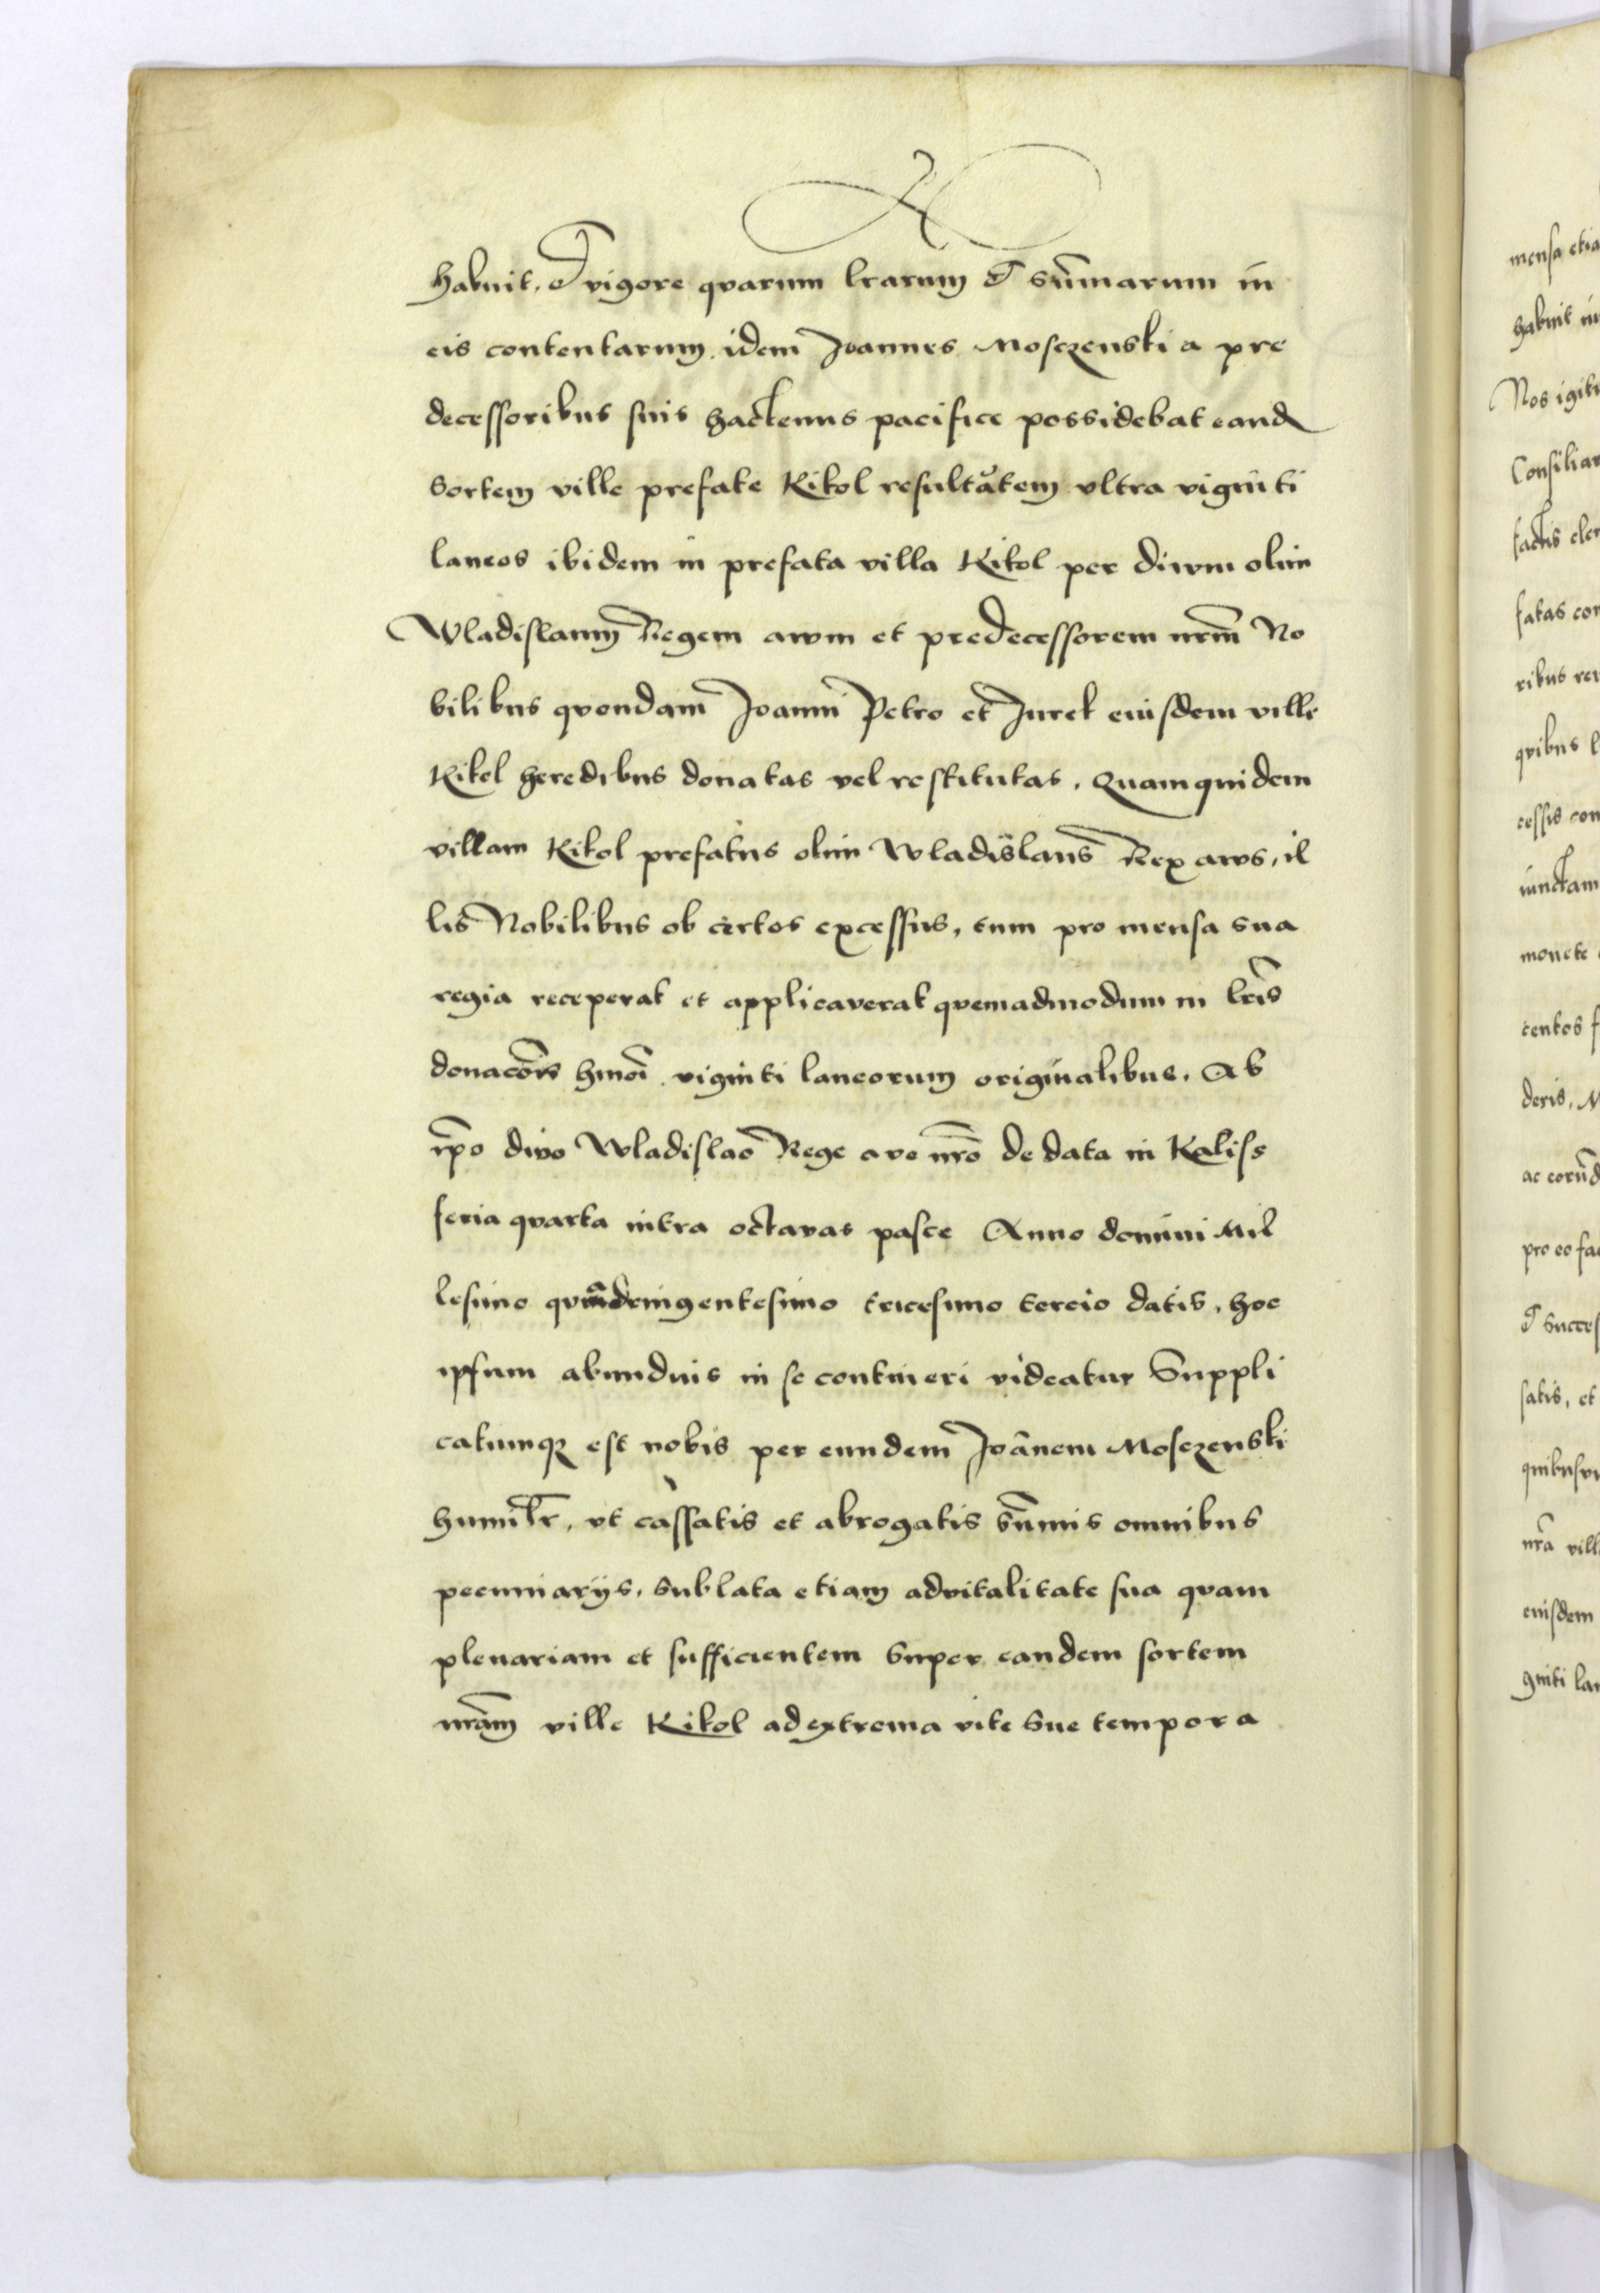 habuit, et vigore quarum lrarum et sum̄marum in
eis contentarum idem Joannes Mosczenski a pre
decessoribus suis hactenus pacifice possidebat eand
sortem ville prefate Kikol resultātem vltra viginti
laneos ibidem in prefata villa Kikol per diwm olim
Wladislaum Regem awm et predecessorem nrm̄ No
bilibus quondam Joanni Petro et Jurek eiusdem ville
Kikol heredibus donatas vel restitutas. Quamquidem
villam Kikol prefatus olim Wladislaus Rex aws, il
lis Nobilibus ob certos excessus, tum pro mensa sua
regia receperat et applicaverat quemadmodum in lrīs
donacōnis hmōi viginti laneorum originalibus. Ab
ip̄o divo Wladislao Rege avo nrō de data in Kaliss
feria quarta intra octavas pasce Anno domini Mil
lesimo quadringentesimo tricesimo tercio datis, hoc
ipsum abundius in se contineri videatur Suppli
catumqȝ est nobis per eundem Joānem Mosczenski
humilr̄, vt cassatis et abrogatis sum̄mis omnibus
pecuniarijs, sublata etiam advitalitate sua quam
plenariam et sufficientem super eandem sortem
nrām ville Kikol ad extrema vite sue tempora
mensa etia
habuit in
Nos igitu
Consiliar
factis cler
fatas con
ribus rev
quibus l
cessis con
iunctam
monete
centos f
deris, M
ac eorūd
pro eo fac
et succes
satis, et
quibusvi
nrā vill
eiusdem
ginti lan